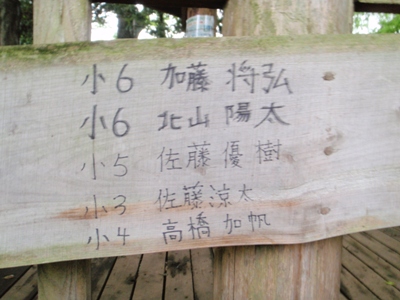 小6 加藤 将弘
小6 北山 陽太
小5 佐藤 優樹
小3 佐藤涼太
小4 高橋 加帆